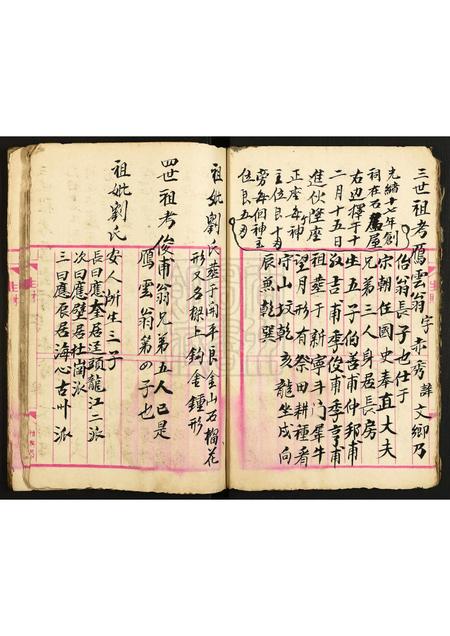 三世祖考鴈雲翁字赤房諱文卿乃
伯翁長子也仕于
宋朝任國史奉直大夫
兄弟三人身居長房
生五子伯善甫仲邦甫
叔吉甫季俊甫季亨甫
祖葬于新寧斗門犀牛
望月形有祭田耕種看
守山坟乾亥龍坐戌向
辰兼乾巽
光緒十七年創
祠在石屋
右边擇于十
二月十五日
進伙陞座
正座每神
主位艮十
旁每個神主
位艮五
祖妣劉氏葬于開平良金山石榴花
形又名樑上鈎金鍾形
四世祖考俊甫翁兄弟五人己是
鴈雲翁第四子也
祖妣劉氏
安人所生三子
長曰應奎居逕頭龍江二派
次曰應璧居杜岡派
三曰應辰居海心古州派